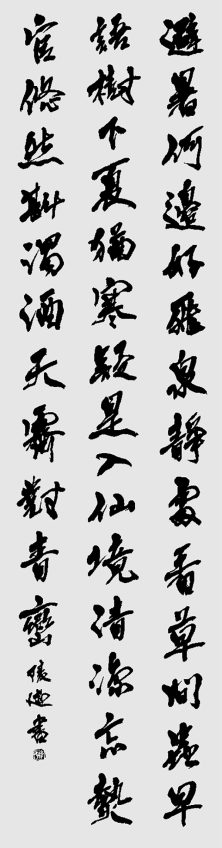 避暑何邊好飛泉靜處看草間蟲早
語樹下夏猶寒疑是入仙境清涼忘熱
官悠然斟濁酒天霽對青巒 書